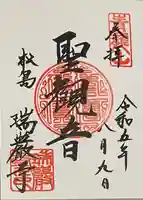 奉拝
令和五年
八月九日
聖観音
松島
瑞巌寺